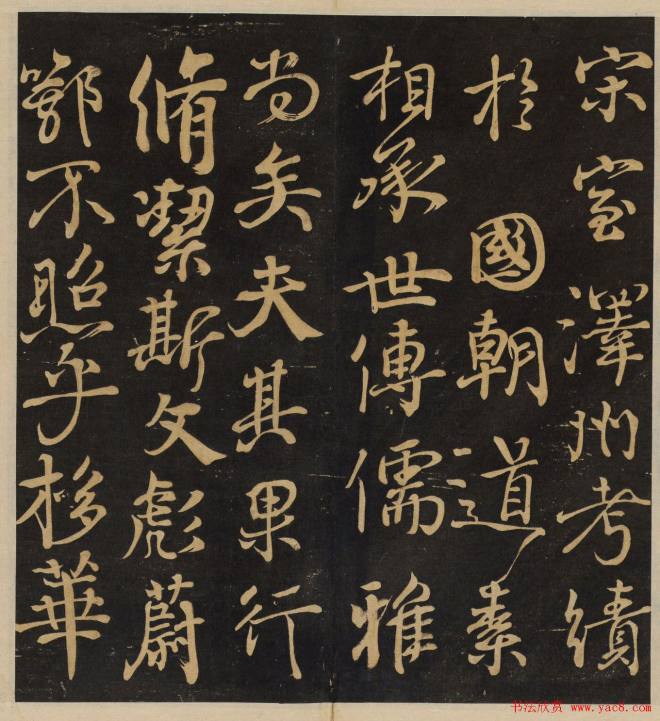 宋室澤州考績
於國朝道素
相承世傳儒雅
尚矣夫其果行
脩潔斯文彪蔚
鄂不照乎栘華
书法欣赏 www.yac8.com